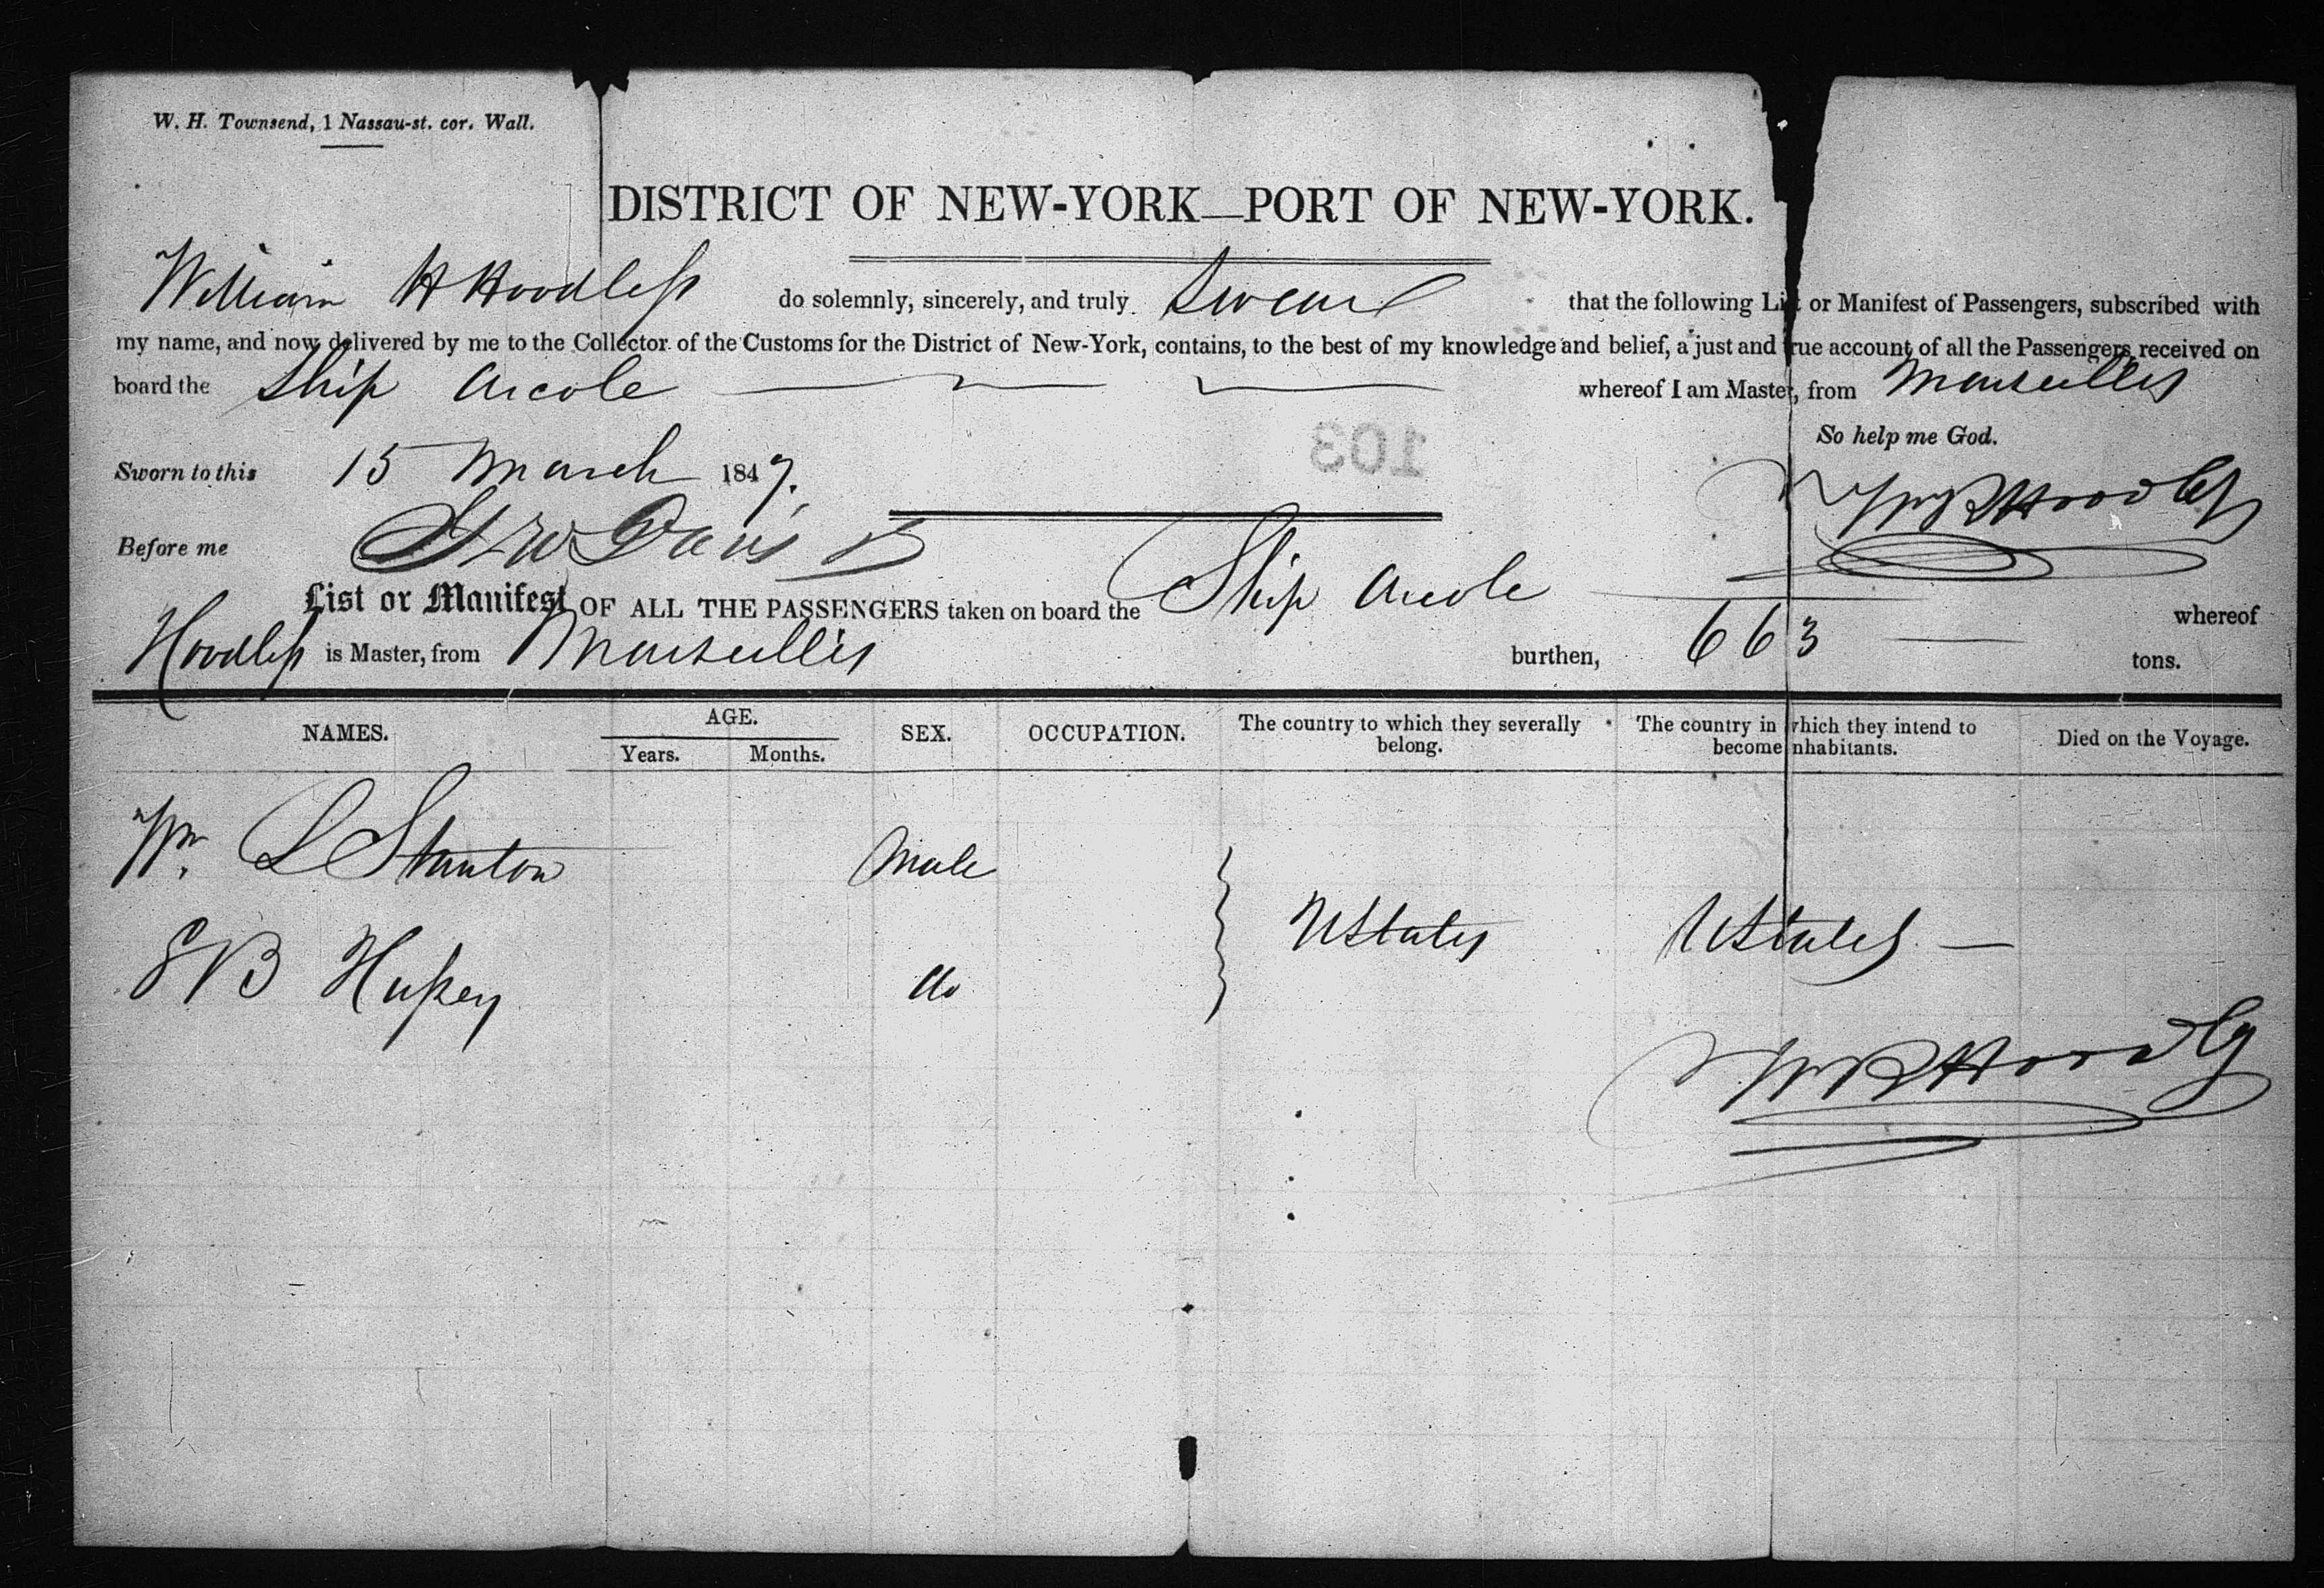 W. H. Townsend, 1 Nassau-st. cor. Wall.
DISTRICT OF NEW-YORK—PORT OF NEW-YORK.
William H Hoodless do solemnly, sincerely, and truly Swear that the following List or Manifest of Passengers, subscribed with
my name, and now delivered by me to the Collector of the Customs for the District of New-York, contains, to the best of my knowledge and belief, a just and true account of all the Passengers received on
board the Ship Arcole whereof I am Master, from Marseilles
So help me God.
Sworn to this 15 March 1847.
103
Before me Davis
List or Manifest OF ALL THE PASSENGERS taken on board the Ship Arcole whereof
Hoodless is Master, from Marseilles burthen, 663 tons.
NAMES. AGE. SEX. OCCUPATION. The country to which they severally belong. The country in which they intend to become inhabitants. Died on the Voyage.
Years. Months.
Wm. L Stanton Male
UStates UStates —
S B Hussey do